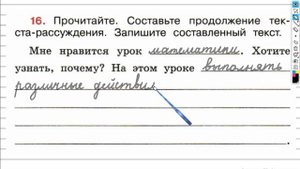 16. Прочитайте. Составьте продолжение тек-
ста-рассуждения. Запишите составленный текст.
Мне нравится урок математики. Хотите
узнать, почему? На этом уроке выполнять
различные действия